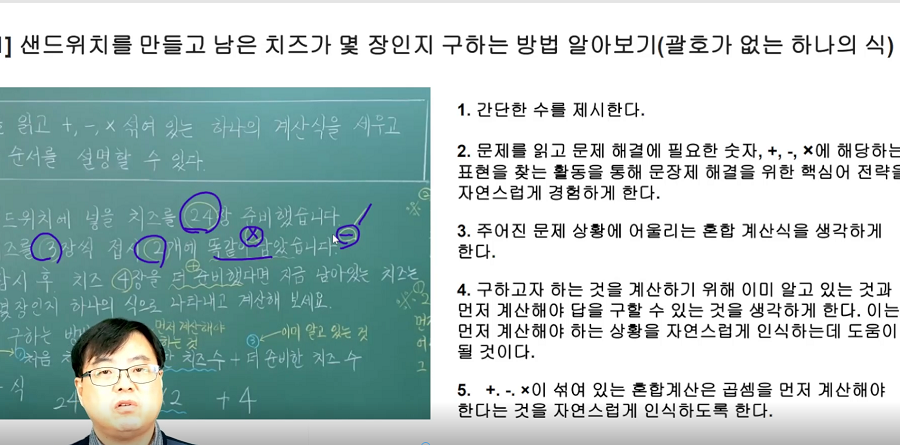 1] 샌드위치를 만들고 남은 치즈가 몇 장인지 구하는 방법 알아보기(괄호가 없는 하나의 식)
읽고 +, -, × 섞여 있는 하나의 계산식을 세우고
순서를 설명할 수 있다.
드위치에 넣을 치즈를 24장 준비했습니다
즈를 3장씩 접시 2개에 똑같이 담았습니다. -
잠시 후 치즈 4장을 더 준비했다면 지금 남아있는 치즈는
몇장인지 하나의 식으로 나타내고 계산해 보세요.
구하는 방법 먼저 계산해야 하는 것 이미 알고 있는 것
처음 치즈수 + 더 준비한 치즈 수
식 24 2 + 4
1. 간단한 수를 제시한다.
2. 문제를 읽고 문제 해결에 필요한 숫자, +, -, ×에 해당하는
표현을 찾는 활동을 통해 문장제 해결을 위한 핵심어 전략을
자연스럽게 경험하게 한다.
3. 주어진 문제 상황에 어울리는 혼합 계산식을 생각하게
한다.
4. 구하고자 하는 것을 계산하기 위해 이미 알고 있는 것과
먼저 계산해야 답을 구할 수 있는 것을 생각하게 한다. 이는
먼저 계산해야 하는 상황을 자연스럽게 인식하는데 도움이
될 것이다.
5. +. -. ×이 섞여 있는 혼합계산은 곱셈을 먼저 계산해야
한다는 것을 자연스럽게 인식하도록 한다.